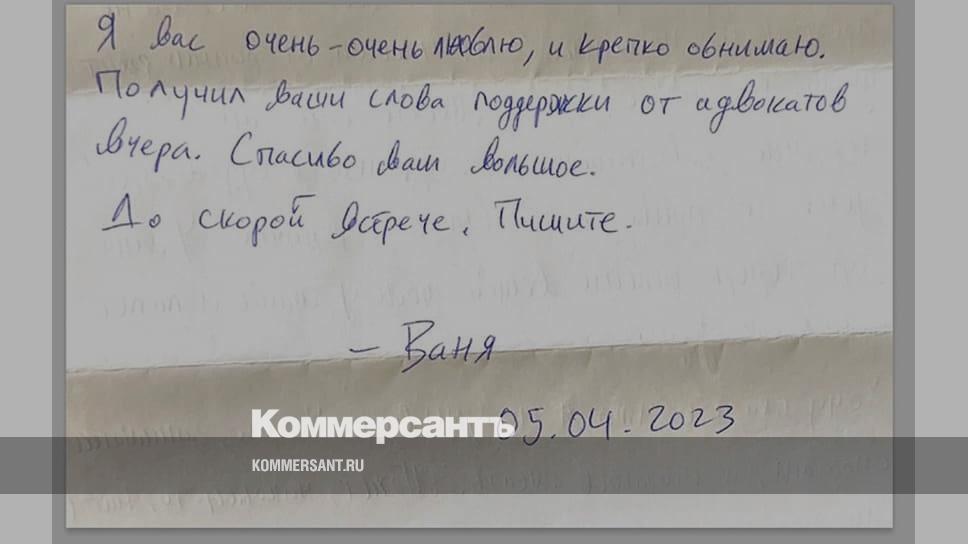 Я вас очень-очень люблю, и крепко обнимаю.
Получил ваши слова поддержки от адвокатов
вчера. Спасибо вам большое.
До скорой встрече. Пишите.
– Ваня
05.04.2023
Коммерсантъ
KOMMERSANT.RU